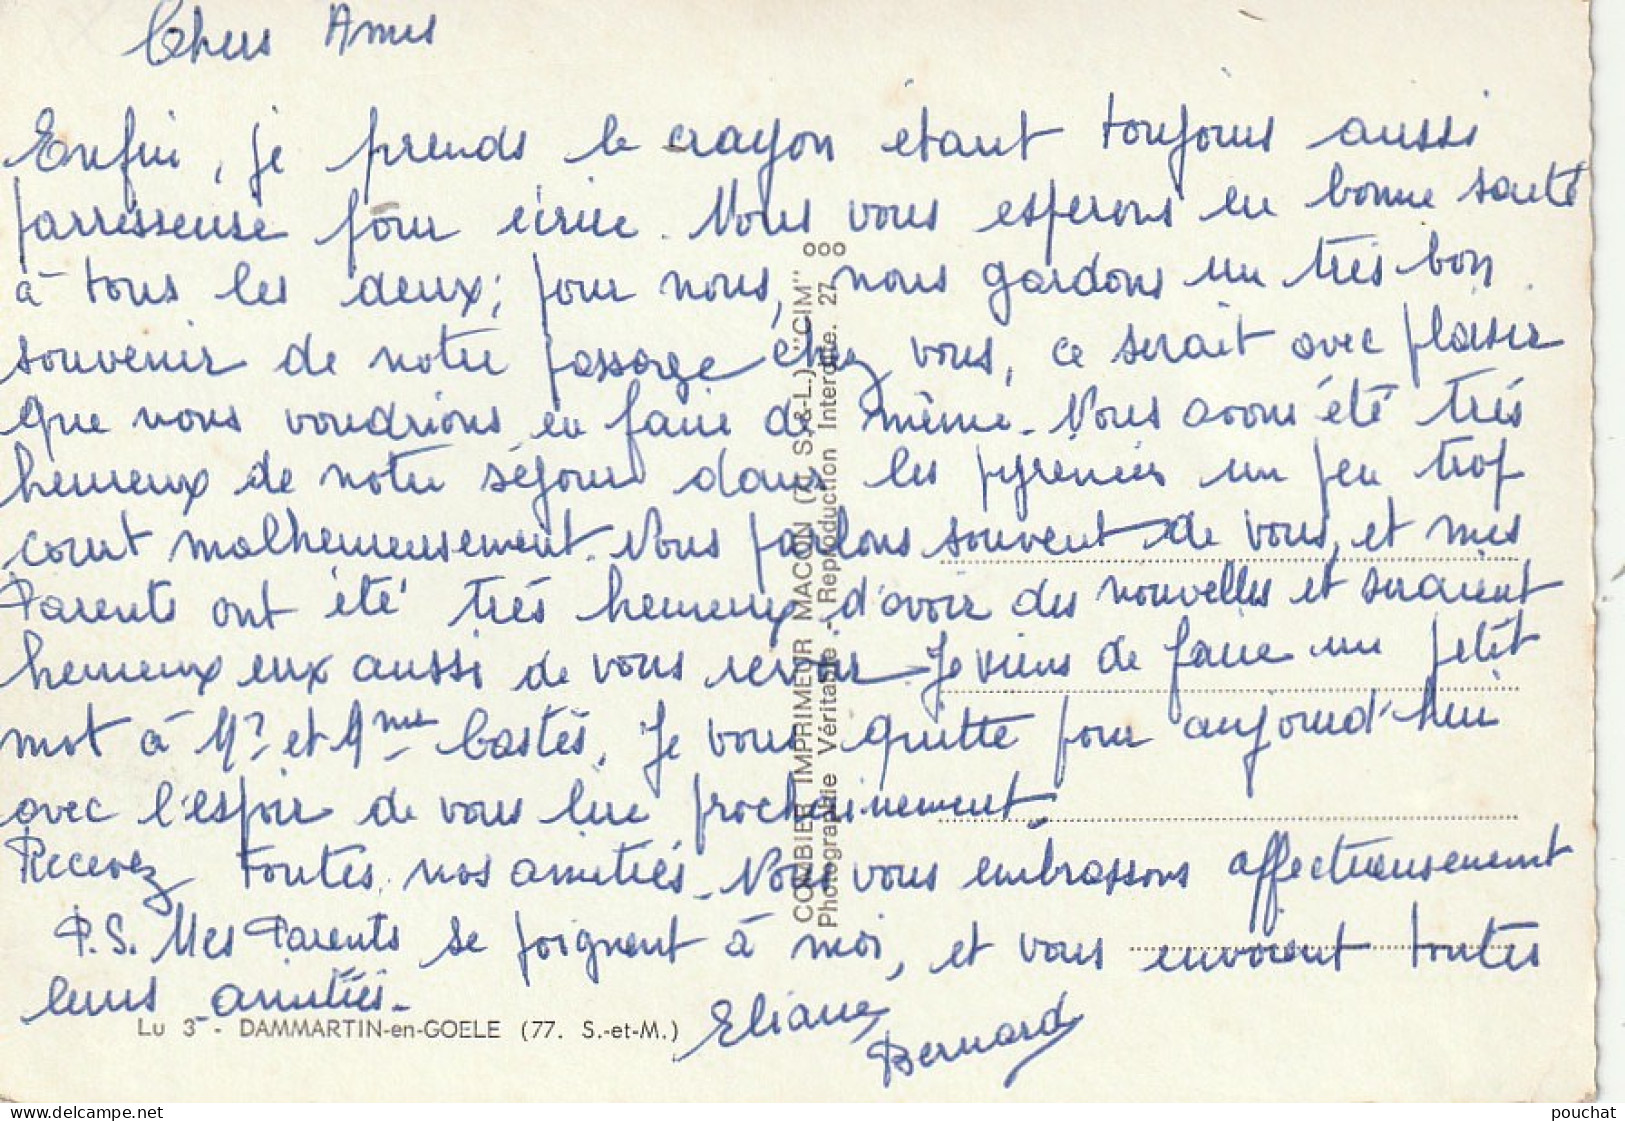 Chers Amis
Enfin, je prends le crayon étant toujours aussi
parresseuse pour écrire. Nous vous esperons en bonne santé
à tous les deux; pour nous, nous gardons un très bon
souvenir de notre passage chez vous, ce serait avec plaisir
que nous voudrions en faire de même. Nous avons été très
heureux de notre séjour dans les pyrenées un peu trop
court malheureusement. Nous parlons souvent de vous, et mes
Parents ont été très heureux d'avoir des nouvelles et seraient
heureux eux aussi de vous revoir. Je viens de faire un petit
mot à Mr et Mme Castés. Je vous quitte pour aujourd'hui
avec l'espoir de vous lire prochainement.
Recevez toutes nos amitiés. Nous vous embrassons affectueusement
P.S. Mes Parents se joignent à moi, et vous envoient toutes
leurs amitiés.
Eliane
Bernard
Lu 3 - DAMMARTIN-en-GOELE (77. S.-et-M.)
COMBIER IMPRIMEUR MACON (71. S.-&-L.) "CIM"
Photographie Véritable - Reproduction Interdite. 27
delcampe.net
pouchat